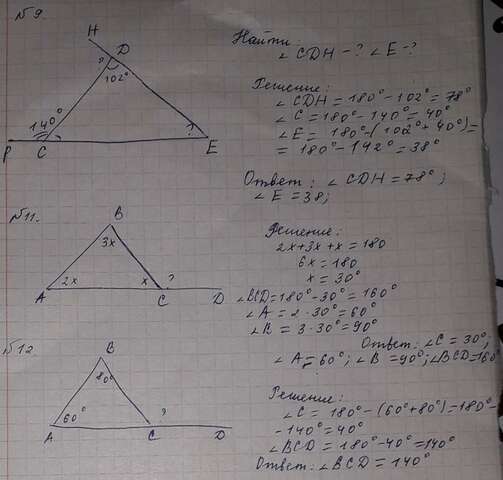 №9.
H
D
?
102°
140°
?
P
C
E
Найти:
∠CDH - ? ∠E - ?
Решение:
∠CDH = 180° - 102° = 78°
∠C = 180° - 140° = 40°
∠E = 180° - (102° + 40°) =
= 180° - 142° = 38°
Ответ: ∠CDH = 78°;
∠E = 38;
№11.
B
3x
2x
x
?
A
C
D
Решение:
2x+3x+x=180
6x=180
x = 30°
∠BCD=180°-30° = 160°
∠A = 2 · 30° = 60°
∠B = 3 · 30° = 90°
Ответ: ∠C = 30°;
∠A = 60°; ∠B = 90°; ∠BCD=160°
№12
B
80°
60°
?
A
C
D
Решение:
∠C = 180° - (60° + 80°) = 180° -
- 140° = 40°
∠BCD = 180° - 40° = 140°
Ответ: ∠BCD = 140°